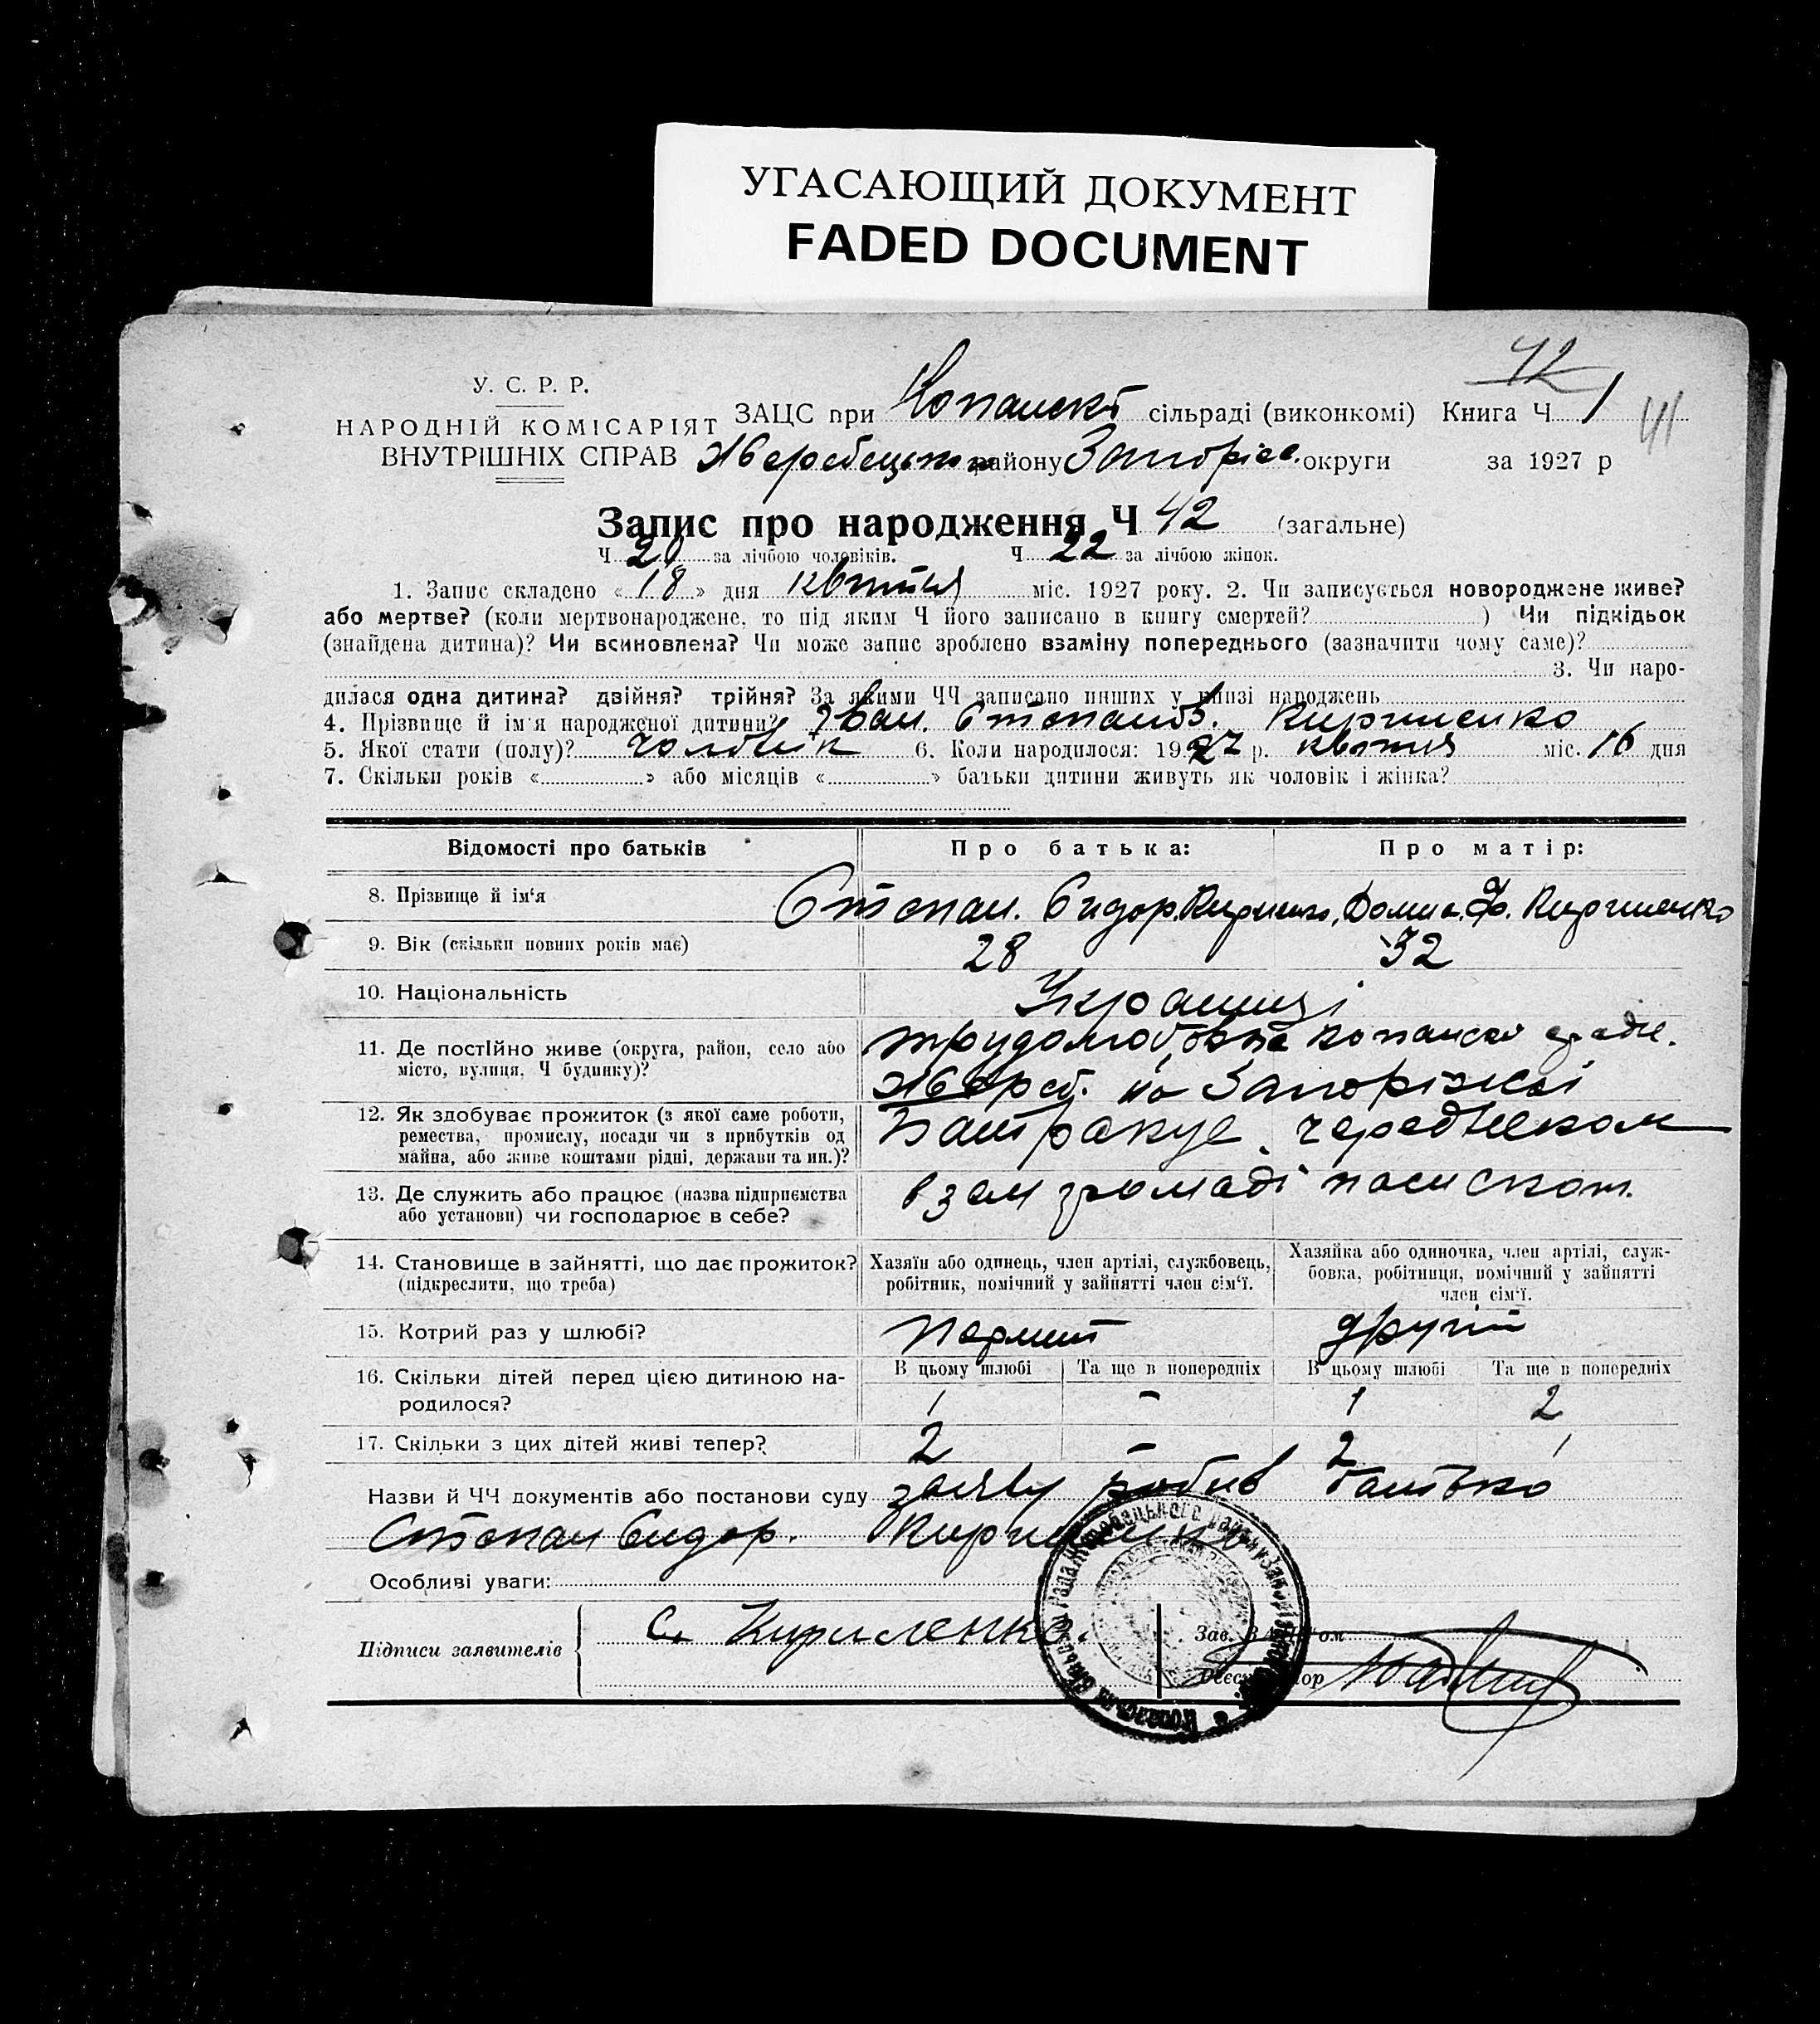 УГАСАЮЩИЙ ДОКУМЕНТ
FADED DOCUMENT
42
41
У. С. Р. Р.
НАРОДНІЙ КОМІСАРІЯТ
ВНУТРІШНІХ СПРАВ
ЗАЦС при Копанскі сільраді (виконкомі) Книга Ч 1
Жеребецьком району Запоріс. округи за 1927 р
Запис про народження Ч 42 (загальне)
Ч 20 за лічбою чоловіків. Ч 22 за лічбою жінок.
1. Запис складено « 18 » дня квітня міс. 1927 року. 2. Чи записується новороджене живе?
або мертве? (коли мертвонароджене, то під яким Ч його записано в книгу смертей? ) Чи підкідьок
(знайдена дитина)? Чи всиновлена? Чи може запис зроблено взаміну попереднього (зазначити чому саме)?
3. Чи наро-
дилася одна дитина? двійня? трійня? За якими ЧЧ записано инших у книзі народжень
4. Прізвище й ім'я народженої дитини? Іван. Степанов. Кириленко
5. Якої стати (полу)? чоловік 6. Коли народилося: 1927 р. квітня міс. 16 дня
7. Скільки років « » або місяців « » батьки дитини живуть як чоловік і жінка?
Відомості про батьків Про батька: Про матір:
8. Прізвище й ім'я Степан. Сидор. Кириленко, Домна. Ф. Кириленко
9. Вік (скільки повних років має) 28 32
10. Національність Українці
11. Де постійно живе (округа, район, село або
місто, вулиця, Ч будинку)?
Трудолюбовка Копанскої сради.
Жереб. Запоріжскої
12. Як здобуває прожиток (з якої саме роботи,
ремества, промислу, посади чи з прибутків од
майна, або живе коштами рідні, держави та ин.)?
Батракує чередником
13. Де служить або працює (назва підприємства
або установи) чи господарює в себе?
в зем громаді
14. Становище в зайнятті, що дає прожиток?
(підкреслити, що треба)
Хазяїн або одинець, член артілі, службовець,
робітник, помічний у зайнятті член сім'ї.
Хазяйка або одиночка, член артілі, служ-
бовка, робітниця, помічний у зайнятті
член сім'ї.
15. Котрий раз у шлюбі? перший другий
16. Скільки дітей перед цією дитиною на-
родилося?
В цьому шлюбі Та ще в попередніх В цьому шлюбі Та ще в попередніх
1 – 1 2
17. Скільки з цих дітей живі тепер? 2 – 2 1
Назви й ЧЧ документів або постанови суду заяву робив батько
Степан Сидор. Кириленко
Особливі уваги:
Підписи заявителів
С. Кириленко.
Зав. ЗАЦС'ом